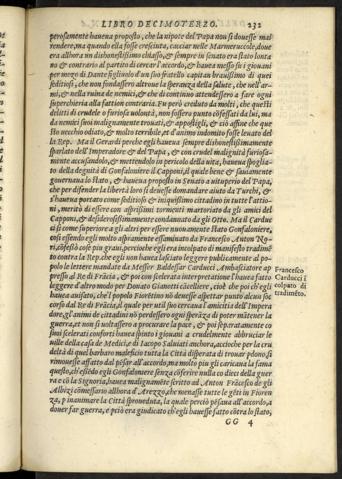 LIBRO DECIMOTERZO. 232
perosamente haueua proposto, che la nipote del Papa non si douesse mal
rendere, ma quando ella fosse cresciuta, cacciar nelle Marmeruccole, doue
era allhora un dishonestissimo chiasso, & sempre in senato era stato lonta
no & contrario al partito di cercar l'accordo, & haueua messo su i giouani
per mezo di Dante figliuolo d'un suo fratello capitan brauissimo di quei
seditiosi, che non fondassero altroue la speranza della salute, che nell'ar-
mi, & nella ruina de nemici, & che di continuo attendessero a fare ogni
superchieria alla fattion contraria. Fu però creduto da molti, che questi
delitti di crudele o furiosa uolontà, non fossero punto cōfessati da lui, ma
da nemici suoi malignamente trouati, & appostigli, & ciò affine che que
sto uecchio odiato, & molto terribile, et d'animo indomito fosse leuato del
la Rep. Ma il Gerardi perche egli haueua sempre dishonestissimamente
sparlato dell'Imperadore & del Papa, & con crudel malignità furiosa-
mente accusandolo, & mettendolo in pericolo della uita, haueua spoglia-
to della degnità di Gonfaloniere il Capponi, il quale bene & sauiamente
gouernaua lo stato, & haueua proposto in Senato a uituperio del Papa,
che per difender la libertà loro si douesse domandare aiuto da Turchi, &
s'haueua portato come seditioso & iniquissimo cittadino in tutte l'attio-
ni, meritò di essere con asprissimi tormenti martoriato da gli amici del
Capponi, & desiderosissimamente condannato da gli Otto. Ma il Carduc
ci sì come superiore a gli altri per essere nuouamente stato Gonfaloniere,
così essendo egli molto aspramente essaminato da Francesco Anton No-
ri, cōfessò cose più graui, perche egli era incolpato di manifesto tradimē
to contra la Rep. che egli non haueua lasciato leggere publicamente al po
polo le lettere mandate da Messer Baldessar Carducci Ambasciatore ap
presso al Re di Frācia, & poi con scelerata interpretatione l'haueua fatto
leggere d'altro modo per Donato Gianotti cācelliere, cioè che poi ch'egli
haueua auisato, che'l popolo Fiorētino nō douesse aspettar punto alcun soc
corso dal Re di Frācia, il quale per util suo cercaua l'amicitia dell'Impera
dore, gl'animi de cittadini nō perdessero ogni sperāza di poter mātener la
guerra, et non si uoltassero a procurare la pace, & poi separatamente co
suoi scelerati conforti haueua spinto i giouani a crudelmente abbruciar le
uille della casa de Medici, e di Iacopo Saluiati anchora, accioche per la cru
deltà di quel barbaro maleficio tutta la Città disperata di trouar pdono, si
rimouesse affatto dal pēsar all'accordo, ma molto più gli caricaua la fama
questo, ch'essēdo egli Gonfaloniere senza cōferire nulla co dieci della guer
ra e cō la Signoria, haueua malignamēte scritto ad Anton Frācesco de gli
Albizi cōmessario allhora d'Arezzo, che menasse tutte le gēti in Fioren
za, p inanimare la Città sproueduta, la quale perciò pēsaua all'accordo, a
douer far guerra, e p ciò era giudicato ch'egli hauesse fatto cōtra lo stato,
GG 4
Francesco
Carducci ī
colpato di
tradimēto.